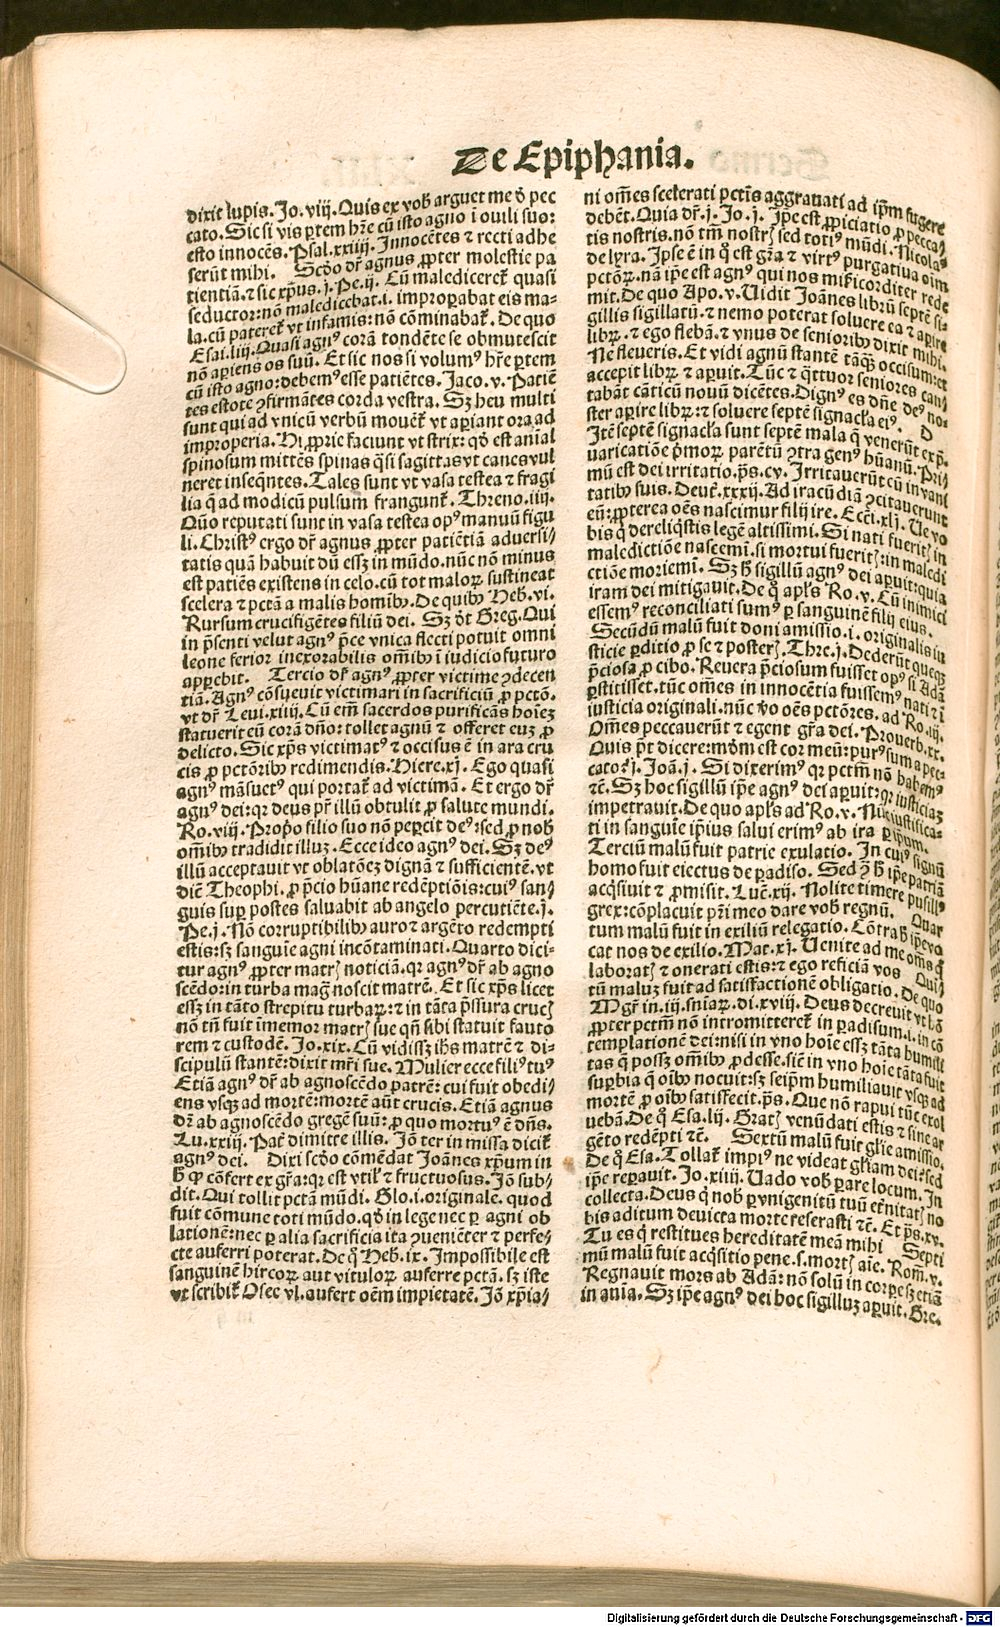 De Epiphania.
dixit lupis. Jo. viij. Quis ex vob̄ arguet me d̓ pec
cato. Sic si vis ꝑtem hr̄e cū isto agno ī ouili suo:
esto innocēs. Psal. xxiiij. Innocētes ⁊ recti adhe
serūt mihi. Scd̓o dr̄ agnus ꝓpter molestie pa
tientiā. ⁊ sic xp̄us. j. Pe. ij. Cū malediceret̄ quasi
seductor: nō maledicebat. i. improꝑabat eis ma-
la. cū pateret̄ vt infamis: nō cōminabat̄. De quo
Esai. liij. Quasi agnꝰ corā tondēte se obmutescit
nō aꝑiens os suū. Et sic nos si volumꝰ hr̄e ꝑtem
cū isto agno: debemꝰ esse patiētes. Jaco. v. Patiē
tes estote ꝯfirmātes corda vestra. Sꝫ heu multi
sunt qui ad vnicū verbū mouēt̄ vt aꝑiant ora ad
improperia. Hi ꝓprie faciunt vt strix: qd̓ est anial
spinosum mittēs spinas q̄si sagittas vt canes vul
neret inseqn̄tes. Tales sunt vt vasa testea ⁊ fragi
lia q̄ ad modicū pulsum frangunt̄. Threno. iiij.
Quō reputati sunt in vasa testea opꝰ manuū figu
li. Christꝰ ergo dr̄ agnus ꝓpter patiētiā aduersi/
tatis quā habuit dū essꝫ in mūdo. nūc nō minus
est patiēs existens in celo. cū tot maloꝝ sustineat
scelera ⁊ pctā a malis homībꝰ. De quibꝰ Heb. vi.
Rursum crucifigētes filiū dei. Sꝫ dt̄ Greg. Qui
in p̄senti velut agnꝰ p̄ce vnica flecti potuit omni
leone ferior inexorabilis om̄ibꝰ ī iudicio futuro
apꝑebit. Tercio dr̄ agnꝰ ꝓpter victime ꝯdecen
tiā. Agnꝰ cōsueuit victimari in sacrificiū ꝓ pctō.
vt dr̄ Leui. xiiij. Cū em̄ sacerdos purificās hoīeꝫ
statuerit eū corā dn̄o: tollet agnū ⁊ offeret euꝫ ꝓ
delicto. Sic xp̄s victimatꝰ ⁊ occisus ē in ara cru
cis ꝓ pctōribꝰ redimendis. Hiere. xj. Ego quasi
agnꝰ māsuetꝰ qui portat̄ ad victimā. Et ergo dr̄
agnꝰ dei: qꝛ deus pr̄ illū obtulit ꝓ salute mundi.
Ro. viij. Prop̓o filio suo nō peꝑcit deꝰ: sed ꝓ nob̄
om̄ibꝰ tradidit illuꝫ. Ecce ideo agnꝰ dei. Sꝫ deꝰ
illū acceptauit vt oblatōeꝫ dignā ⁊ sufficientē. vt
diē Theophi. ꝓ p̄cio hūane redēptiōis: cuiꝰ san/
guis suꝑ postes saluabit ab angelo percutiēte. j.
Pe. j. Nō corruptibilibꝰ auro ⁊ argēto redempti
estis: sꝫ sanguīe agni incōtaminati. Quarto dici-
tur agnꝰ ꝓpter matrꝭ noticiā. qꝛ agnꝰ dr̄ ab agno
scēdo: in turba mag̓ noscit matrē. Et sic xp̄s licet
essꝫ in tāto strepitu turbaꝝ: ⁊ in tāta p̄ssura crucꝭ
nō tn̄ fuit īmemor matrꝭ sue qn̄ sibi statuit fauto
rem ⁊ custodē. Jo. xix. Cū vidissꝫ ih̄s matrē ⁊ di-
scipulū stantē: dixit mr̄i sue. Mulier ecce filiꝰ tuꝰ
Etiā agnꝰ dr̄ ab agnoscēdo patrē: cui fuit obedi/
ens vsqꝫ ad mortē: mortē aūt crucis. Etiā agnus
dr̄ ab agnoscēdo gregē suū: ꝓ quo mortuꝰ ē dn̄s.
Lu. xxiij. Pat̄ dimitte illis. Jō ter in missa dicit̄
agnꝰ dei. Dixi scd̓o cōmēdat Joānes xp̄um in
h̄ ꝙ cōfert ex gr̄a: qꝛ est vtil̓ ⁊ fructuosus. Jō sub/
dit. Qui tollit pctā mūdi. Glo. i. originale. quod
fuit cōmune toti mūdo. qd̓ in lege nec ꝑ agni ob
lationē: nec ꝑ alia sacrificia ita ꝯueniēter ⁊ perfe/
cte auferri poterat. De q̓ Heb. ix. Impossibile est
sanguinē hircoꝝ aut vituloꝝ auferre pctā. sꝫ iste
vt scribit̄ Osee vl. aufert oēm impietatē. Jō xp̄ia/
ni om̄es scelerati pctīs aggrauati ad ip̄m fugere
debēt. Quia dr̄. j. Jo. j. Ip̄e est ꝓpiciatio ꝓ pecca/
tis nostris. nō tm̄ nostrꝭ sed totiꝰ mūdi. Nicolaꝰ
de lyra. Ipse ē in q̓ est gr̄a ⁊ virtꝰ purgatiua oīm
pctōꝝ. nā ip̄e est agnꝰ qui nos mīcorditer rede
mit. De quo Apo. v. Uidit Joānes librū septē si-
gillis sigillatū. ⁊ nemo poterat soluere ea ⁊ aꝑire
libꝝ. ⁊ ego flebā. ⁊ vnus de seniorībꝰ dixit mihi.
Ne fleueris. Et vidi agnū stantē tāqꝫ occisum: et
accepit libꝝ ⁊ aꝑuit. Tūc ⁊ q̄ttuor seniores can/
tabāt cāticū nouū dicētes. Dignꝰ es dn̄e deꝰ no-
ster aꝑire libꝝ: ⁊ soluere septē signacl̄a eiꝰ. D
Itē septē signacl̄a sunt septē mala q̄ venerūt ex p̄-
uaricatiōe p̓moꝝ parētū ꝯtra genꝰ hūanū. Pri/
mū est dei irritatio. ps̄. cv. Irritauerūt eū in vani
tatibꝰ suis. Deut̄. xxxij. Ad iracūdiā ꝯcitauerunt
eū: ꝓpterea oēs nascimur filij ire. Ecci. xlj. Ue vo
bis q̓ dereliq̄stis legē altissimi. Si nati fueritꝭ in
maledictiōe nascemī. si mortui fueritꝭ: in maledi
ctiōe moriemī. Sꝫ h̄ sigillū agnꝰ dei aꝑuit: quia
iram dei mitigauit. De q̓ apl̄s Ro. v. Cū inimici
essemꝰ reconciliati sumꝰ ꝑ sanguinē filij eius.
Secūdū malū fuit doni amissio. i. originalis iu
sticie ꝑditio ꝓ se ⁊ posterꝭ. Thre. j. Dederūt queqꝫ
p̄ciosa ꝓ cibo. Reuera p̄ciosum fuisset opꝰ si Adā
ꝑstitisset. tūc om̄es in innocētia fuissemꝰ nati ⁊ ī
iusticia originali. nūc v̓o oēs pctōres. ad Ro. iij.
Om̄es peccauerūt ⁊ egent gr̄a dei. Prouerb. xx.
Quis pt̄ dicere: mūdm̄ est cor meū: purꝰ sum a pec-
cato: ⁊. j. Joā. j. Si dixerimꝰ qꝛ pctm̄ nō habemꝰ
⁊c̄. Sꝫ hoc sigillū ip̄e agnꝰ dei aꝑuit: qꝛ iusticiaꝫ
impetrauit. De quo apl̄s ad Ro. v. Nūc iustifica-
ti in sanguīe ip̄ius salui erimꝰ ab ira ꝑ ip̄um.
Terciū malū fuit patrie exulatio. In cuiꝰ signū
homo fuit eiectus de ꝑadiso. Sed ꝯ̄ h̄ ip̄e patriā
acq̄siuit ⁊ ꝓmisit. Luc̄. xij. Nolite timere pusillꝰ
grex: cōplacuit pr̄i meo dare vob̄ regnū. Quar
tum malū fuit in exiliū relegatio. Cōtra h̄ ip̄e vo
cat nos de exilio. Mat. xj. Uenite ad me om̄s q̓
laboratꝭ ⁊ onerati estis: ⁊ ego reficiā vos Quī/
tū maluꝫ fuit ad satisfactionē obligatio. De quo
Mgr̄ in. iij. sn̄iaꝝ. di. xviij. Deus decreuit vt h̄ō
ꝓpter pctm̄ nō intromitteret̄ in ꝑadisum. i. in cō
templationē dei: nisi in vno hoīe essꝫ tāta humili
tas q̄ possꝫ om̄ibꝰ ꝓdesse. siē in vno hoīe tāta fuit
suꝑbia q̄ oībꝰ nocuit: sꝫ seip̄m humiliauit vsqꝫ ad
mortē ꝓ oībꝰ satiffecit. ps̄. Que nō rapui tūc exol
uebā. De q̓ Esa. lij. Gratꝭ venūdati estis ⁊ sine ar
gēto redēpti ⁊c̄. Sextū malū fuit gl̄ie amissio.
De q̓ Esa. Tollat̄ impiꝰ ne videat gl̄iam dei: sed
ip̄e reꝑauit. Jo. xiiij. Uado vob̄ parare locum. In
collecta. Deus q̓ nob̄ ꝑ vnigenitū tuū et̓nitatꝭ no
bis aditum deuicta morte reserasti ⁊c̄. Et ps̄. xv.
Tu es q̓ restitues hereditatē meā mihi Septi
mū malū fuit acq̄sitio pene. s. mortꝭ aīe. Rom̄. v.
Regnauit mors ab Adā: nō solū in corꝑe sꝫ etiā
in aīa. Sꝫ ip̄e agnꝰ dei hoc sigilluꝫ aꝑuit. Gre.
Digitalisierung gefördert durch die Deutsche Forschungsgemeinschaft - DFG